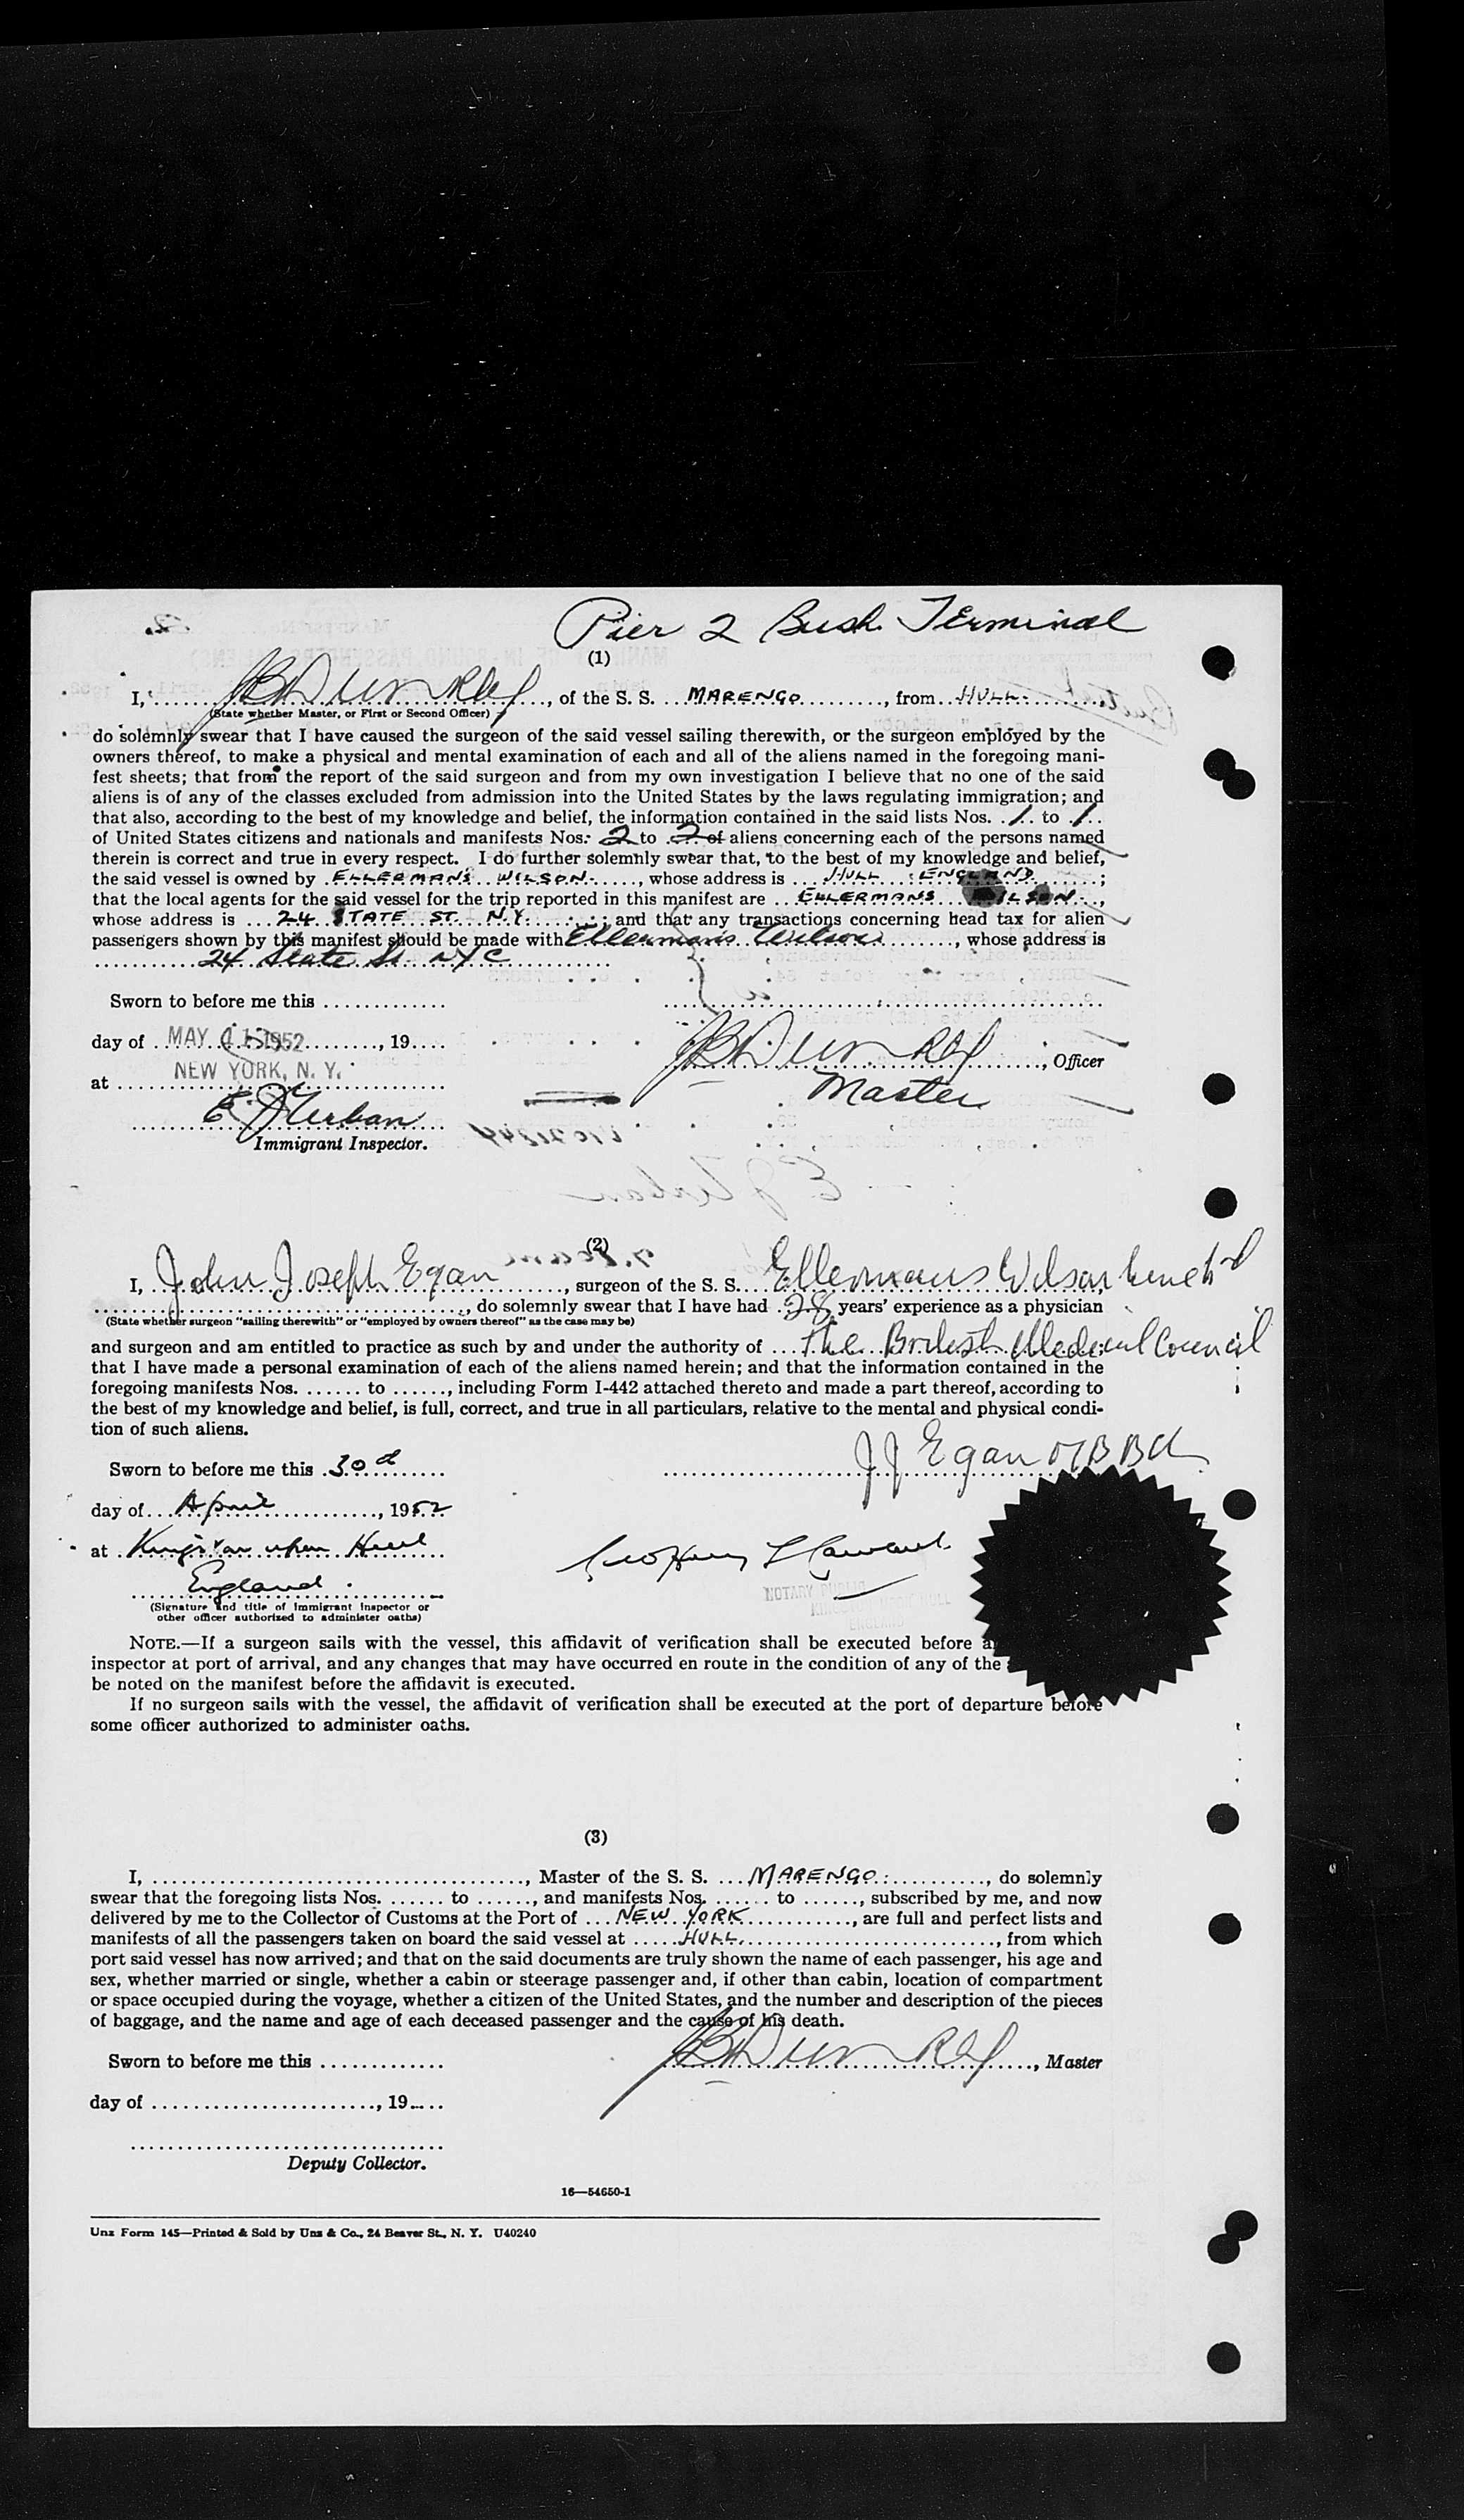 Pier 2 Bush Terminal
(1)
I, ...................., of the S. S. MARENGO, from HULL.
(State whether Master, or First or Second Officer)
do solemnly swear that I have caused the surgeon of the said vessel sailing therewith, or the surgeon employed by the
owners thereof, to make a physical and mental examination of each and all of the aliens named in the foregoing mani-
fest sheets; that from the report of the said surgeon and from my own investigation I believe that no one of the said
aliens is of any of the classes excluded from admission into the United States by the laws regulating immigration; and
that also, according to the best of my knowledge and belief, the information contained in the said lists Nos. 1 to 1
of United States citizens and nationals and manifests Nos. 2 to 2 of aliens concerning each of the persons named
therein is correct and true in every respect. I do further solemnly swear that, to the best of my knowledge and belief,
the said vessel is owned by ELLERMANS WILSON, whose address is HULL ENGLAND;
that the local agents for the said vessel for the trip reported in this manifest are ELLERMANS WILSON,
whose address is 24 STATE ST. N.Y.; and that any transactions concerning head tax for alien
passengers shown by this manifest should be made with Ellermans Wilson, whose address is
24 State St. NYC
Sworn to before me this .............
day of MAY 11 1952, 19....
, Officer
NEW YORK, N. Y.
at
Master
E J Terban
Immigrant Inspector.
E J Terban
(2)
I, John Joseph Egan, surgeon of the S. S. Ellermans Wilson Line Ltd
, do solemnly swear that I have had 28 years' experience as a physician
(State whether surgeon "sailing therewith" or "employed by owners thereof" as the case may be)
and surgeon and am entitled to practice as such by and under the authority of The British Medical Council
that I have made a personal examination of each of the aliens named herein; and that the information contained in the
foregoing manifests Nos. ...... to ......, including Form I-442 attached thereto and made a part thereof, according to
the best of my knowledge and belief, is full, correct, and true in all particulars, relative to the mental and physical condi-
tion of such aliens.
J J Egan MB BCh
Sworn to before me this 30th
day of April, 1952
at Kingston upon Hull
England
NOTARY PUBLIC
KINGSTON UPON HULL
ENGLAND
(Signature and title of Immigrant Inspector or
other officer authorized to administer oaths)
NOTE.—If a surgeon sails with the vessel, this affidavit of verification shall be executed before
inspector at port of arrival, and any changes that may have occurred en route in the condition of any of the
be noted on the manifest before the affidavit is executed.
If no surgeon sails with the vessel, the affidavit of verification shall be executed at the port of departure before
some officer authorized to administer oaths.
(3)
I, ......................................, Master of the S. S. MARENGO, do solemnly
swear that the foregoing lists Nos. ...... to ......, and manifests Nos. ...... to ......, subscribed by me, and now
delivered by me to the Collector of Customs at the Port of NEW YORK, are full and perfect lists and
manifests of all the passengers taken on board the said vessel at HULL, from which
port said vessel has now arrived; and that on the said documents are truly shown the name of each passenger, his age and
sex, whether married or single, whether a cabin or steerage passenger and, if other than cabin, location of compartment
or space occupied during the voyage, whether a citizen of the United States, and the number and description of the pieces
of baggage, and the name and age of each deceased passenger and the cause of his death.
Sworn to before me this .............
, Master
day of ........................, 19....
Deputy Collector.
16—54650-1
Unz Form 145—Printed & Sold by Unz & Co., 24 Beaver St., N. Y. U40240